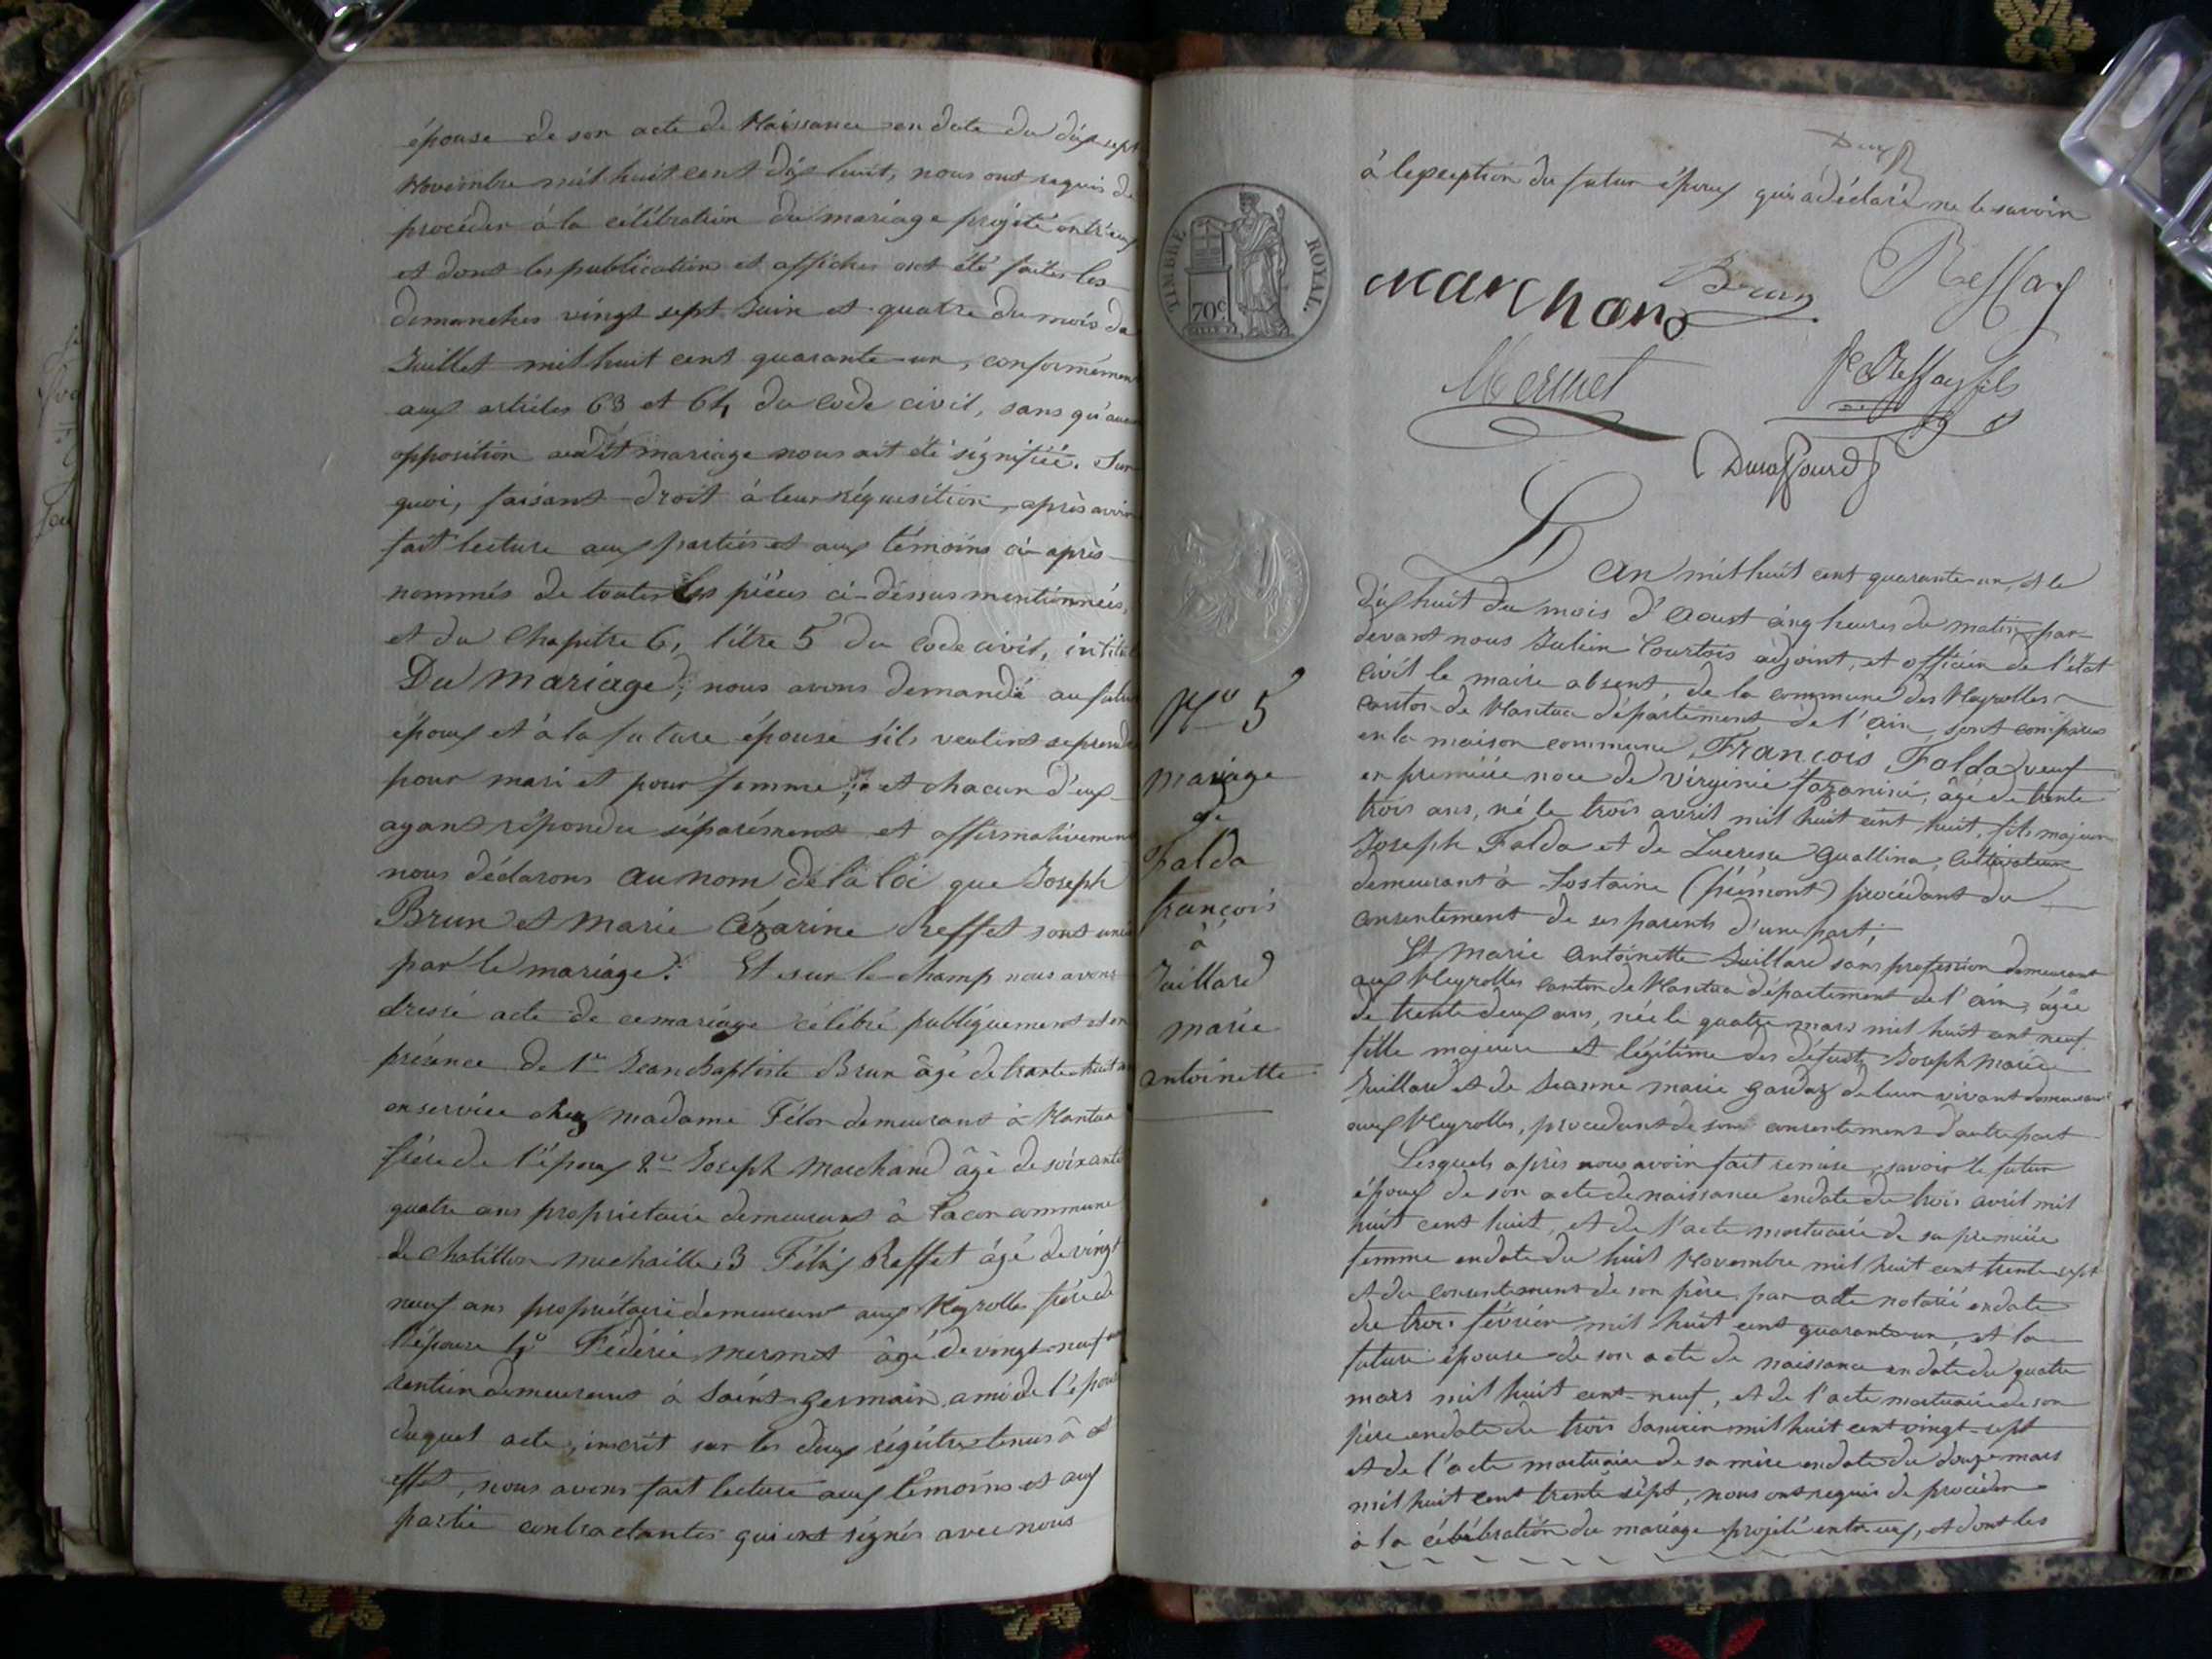 épouse de son acte de Naissance en date du dix sept
Novembre mil huit cent dix huit, nous ont requis de
procéder à la célébration du mariage projeté entr'eux
et dont les publications et affiches ont été faites les
dimanches vingt sept Juin et quatre du mois de
Juillet mil huit cent quarante-un, conformément
aux articles 63 et 64, du Code civil, sans qu'aucune
opposition audit mariage nous ait été signifiée. Sur
quoi, faisant droit à leur réquisition, après avoir
fait lecture aux parties et aux témoins ci-après
nommés de toutes les pièces ci-dessus mentionnées,
et du Chapitre 6, titre 5 du Code civil, intitulé
Du Mariage; nous avons demandé au futur
époux et à la future épouse s'ils veulent se prendre
pour mari et pour femme; et chacun d'eux
ayant répondu séparément et affirmativement
nous déclarons au nom de la loi que Joseph
Brun et Marie Cézarine Reffet sont unis
par le mariage. Et sur le champ nous avons
dressé acte de ce mariage célébré publiquement et en
présence de 1º Jean Baptiste Brun âgé de trente huit ans
en service chez madame Félon demeurant à Nantua
frère de l'époux 2º Joseph Marchand âgé de soixante
quatre ans propriétaire demeurant à Tacon commune
de Chatillon michaille, 3 Félix Reffet âgé de vingt
neuf ans propriétaire demeurant aux Neyrolles frère de
l'épouse 4º Fédéric Mermet âgé de vingt-neuf ans
rentier demeurant à Saint-germain, ami de l'époux
duquel acte, inscrit sur les deux régistres tenus à cet
effet, nous avons fait lecture aux témoins et aux
partie contractantes qui ont signés avec nous
à l'exception du futur époux qui a déclaré ne le savoir
TIMBRE ROYAL
70c
Marchand Brun Reffay
Mermet Reffay fils
Duraffourd
L'an mil huit cent quarante-un, et le
dix huit du mois d'Aoust cinq heures du matin, par-
devant nous Julien Courtois adjoint, et officier de l'état
civil le maire absent, de la commune des Neyrolles
canton de Nantua département de l'ain, sont comparus
en la maison commune, François Falda veuf
en première noce de Virginie, âgé de trente
trois ans, né le trois avril mil huit cent huit, fils majeur
Joseph Falda et de Guallina, Cultivateur
demeurant à Lostaine (piémont) procédant du
consentement de ses parents d'une part;
Et Marie Antoinette Juillard sans profession demeurant
aux Neyrolles canton de Nantua département de l'ain, âgée
de trente deux ans, née le quatre mars mil huit cent neuf
fille majeure et légitime des défunts Joseph Marie
Juillard et de Jeanne Marie gardaz de leur vivant demeurant
aux Neyrolles, procédant de son consentement d'autre part
Lesquels après nous avoir fait remise, savoir le futur
époux de son acte de naissance en date du trois avril mil
huit cent huit, et de l'acte mortuaire de sa première
femme en date du huit Novembre mil huit cent trente sept
et du consentement de son père par acte notarié en date
du trois février mil huit cent quarante un, et la
future épouse de son acte de naissance en date du quatre
mars mil huit cent-neuf, et de l'acte mortuaire de son
père en date du trois Janvier mil huit cent vingt-sept
et de l'acte mortuaire de sa mère en date du douze mars
mil huit cent trente sept, nous ont requis de procéder
à la célébration du mariage projeté entr'eux, et dont les
Nº 5
Mariage
de
Falda
françois
à
Juillard
marie
antoinette